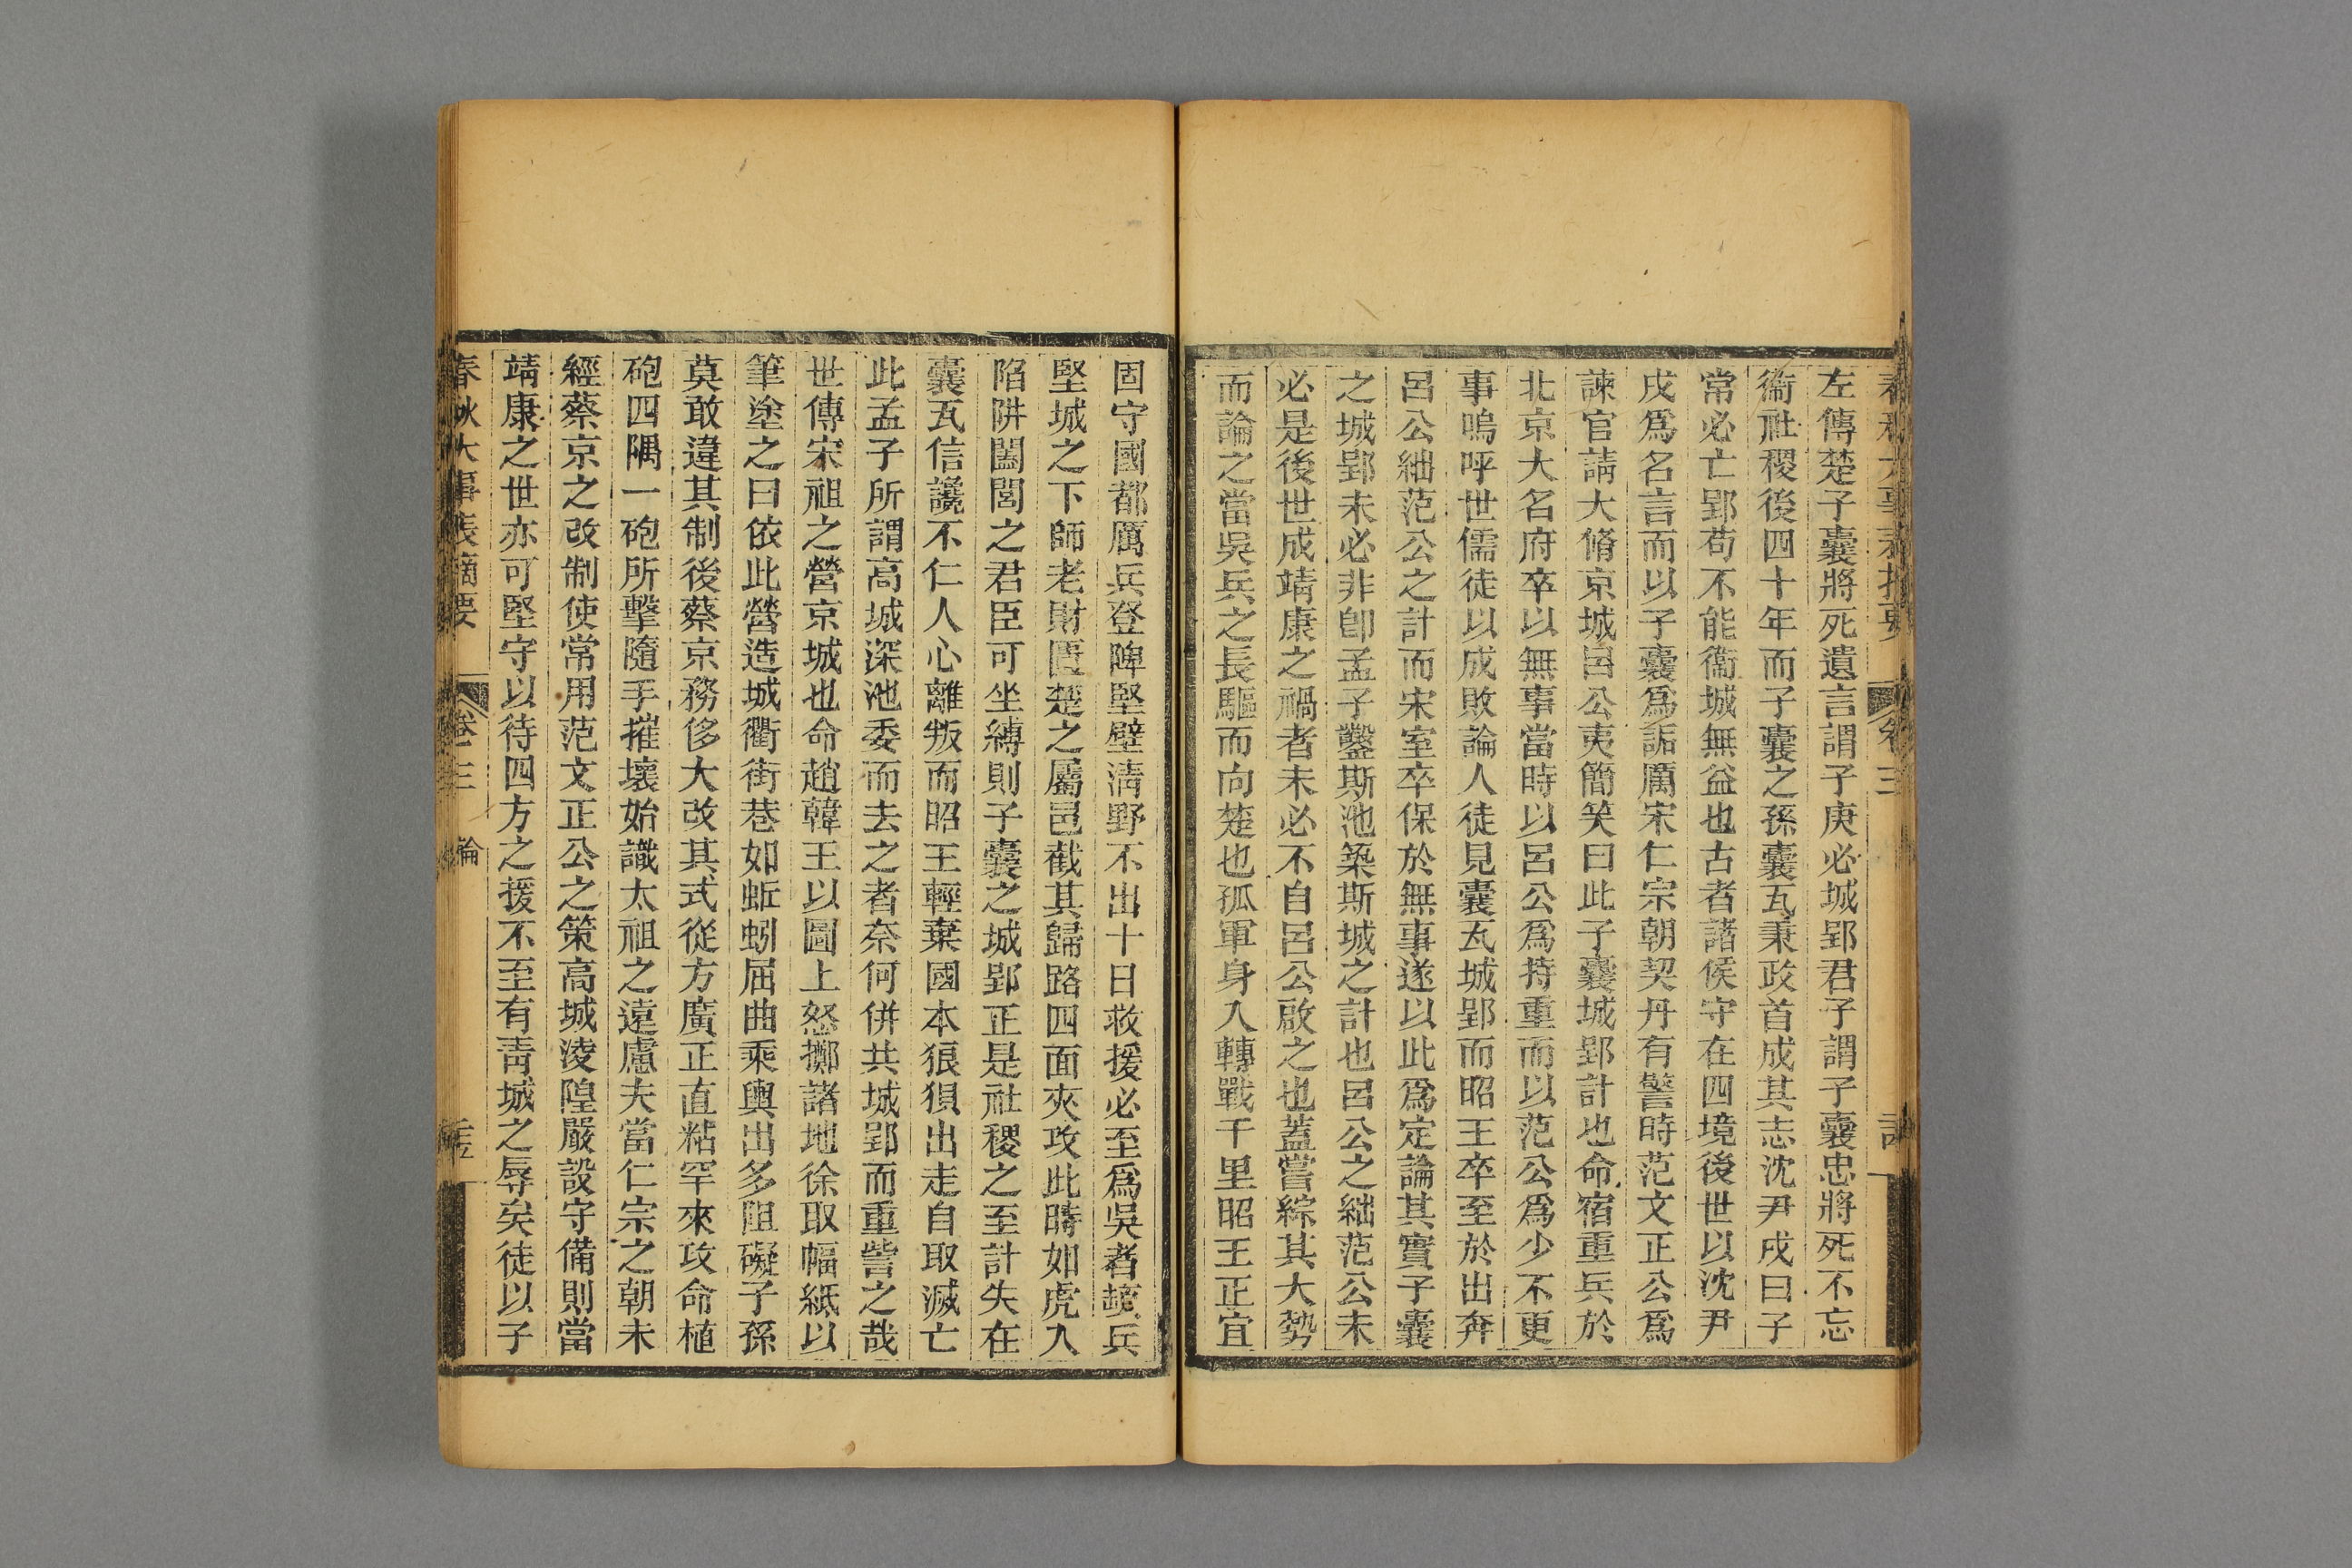 春秋大事表摘要 卷三 論
左傳楚子囊將死遺言謂子庚必城郢君子謂子囊忠將死不忘
衞社稷後四十年而子囊之孫囊瓦秉政首成其志沈尹戌曰子
常必亡郢苟不能衞城無益也古者諸侯守在四境後世以沈尹
戌爲名言而以子囊爲詬厲宋仁宗朝契丹有警時范文正公爲
諫官請大脩京城呂公夷簡笑曰此子囊城郢計也命宿重兵於
北京大名府卒以無事當時以呂公爲持重而以范公爲少不更
事嗚呼世儒徒以成敗論人徒見囊瓦城郢而昭王卒至於出奔
呂公絀范公之計而宋室卒保於無事遂以此爲定論其實子囊
之城郢未必非卽孟子鑿斯池築斯城之計也呂公之絀范公未
必是後世成靖康之禍者未必不自呂公啟之也蓋嘗綜其大勢
而論之當吳兵之長驅而向楚也孤軍身入轉戰千里昭王正宜
固守國都厲兵登陴堅壁淸野不出十日救援必至爲吳者頓兵
堅城之下師老財匱楚之屬邑截其歸路四面夾攻此時如虎入
陷阱闔閭之君臣可坐縛則子囊之城郢正是社稷之至計失在
囊瓦信讒不仁人心離叛而昭王輕棄國本狼狽出走自取滅亡
此孟子所謂高城深池委而去之者奈何併共城郢而重訾之哉
世傳宋祖之營京城也命趙韓王以圖上怒擲諸地徐取幅紙以
筆塗之曰依此營造城衢街巷如蚯蚓屈曲乘輿出多阻礙子孫
莫敢違其制後蔡京務侈大改其式從方廣正直粘罕來攻命植
砲四隅一砲所擊隨手摧壞始識太祖之遠慮夫當仁宗之朝未
經蔡京之改制使常用范文正公之策高城淩隍嚴設守備則當
靖康之世亦可堅守以待四方之援不至有靑城之辱矣徒以子
春秋大事表摘要 卷三 論